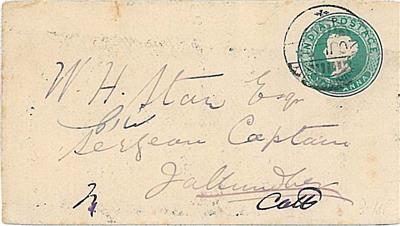 INDIA POSTAGE
ANNA
W. H. Starr Esqr
Surgeon Captain
Jallundher
Catt